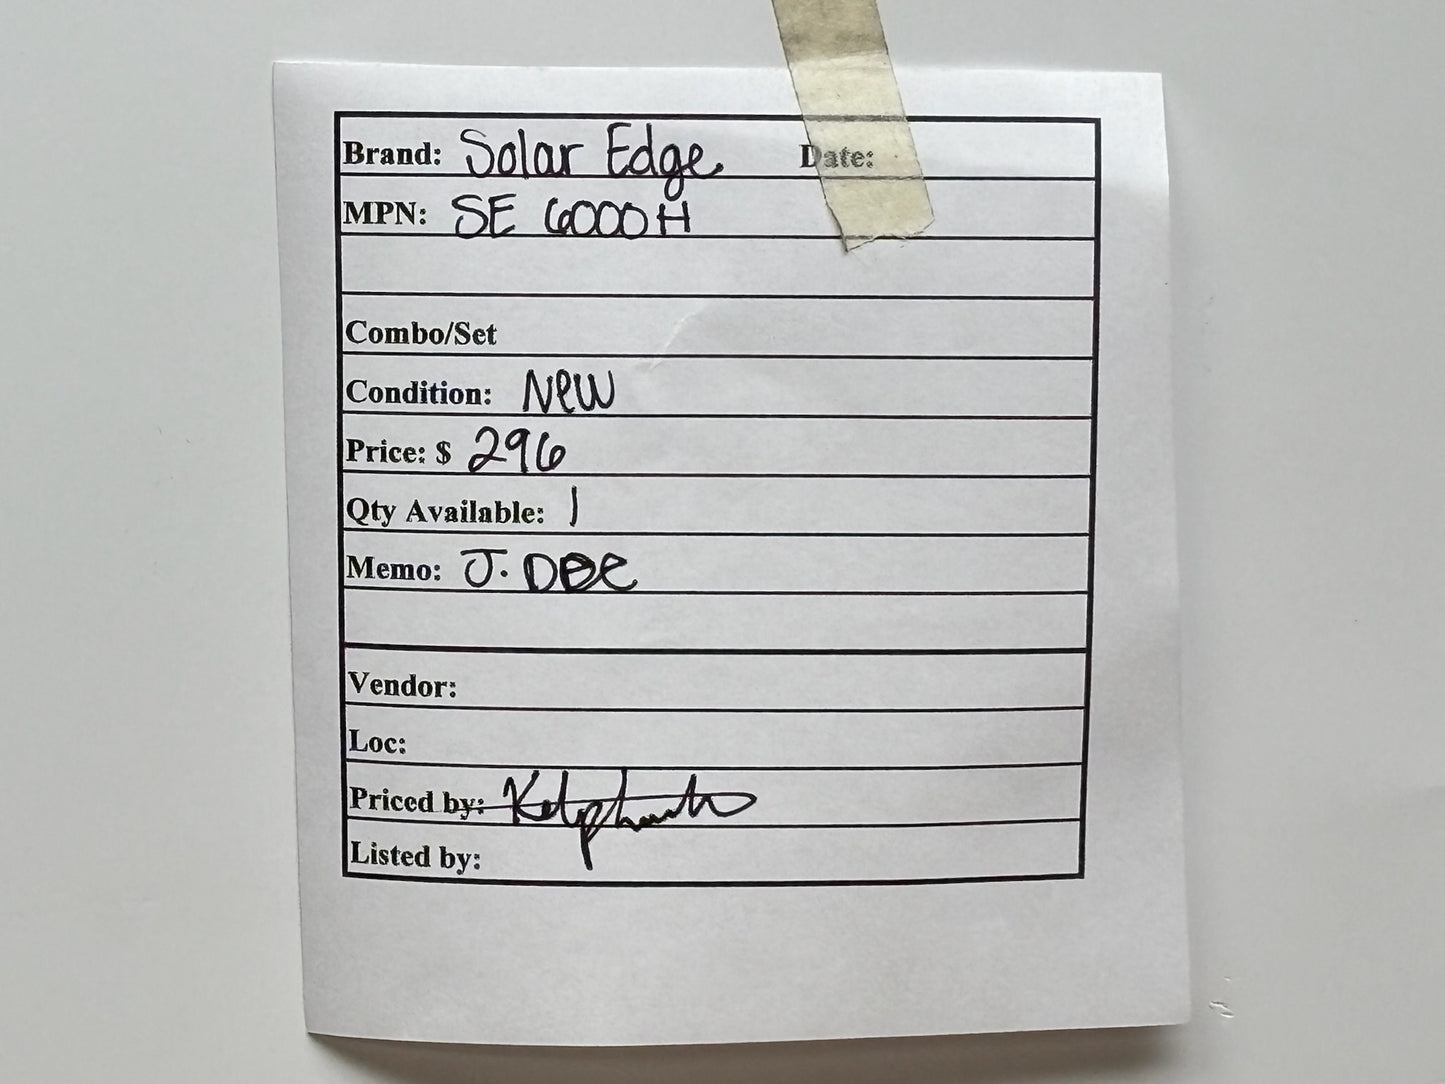 Brand: Solar Edge Date:
MPN: SE 6000H
Combo/Set
Condition: New
Price: $ 296
Qty Available: 1
Memo: J. DOE
Vendor:
Loc:
Priced by:
Listed by: